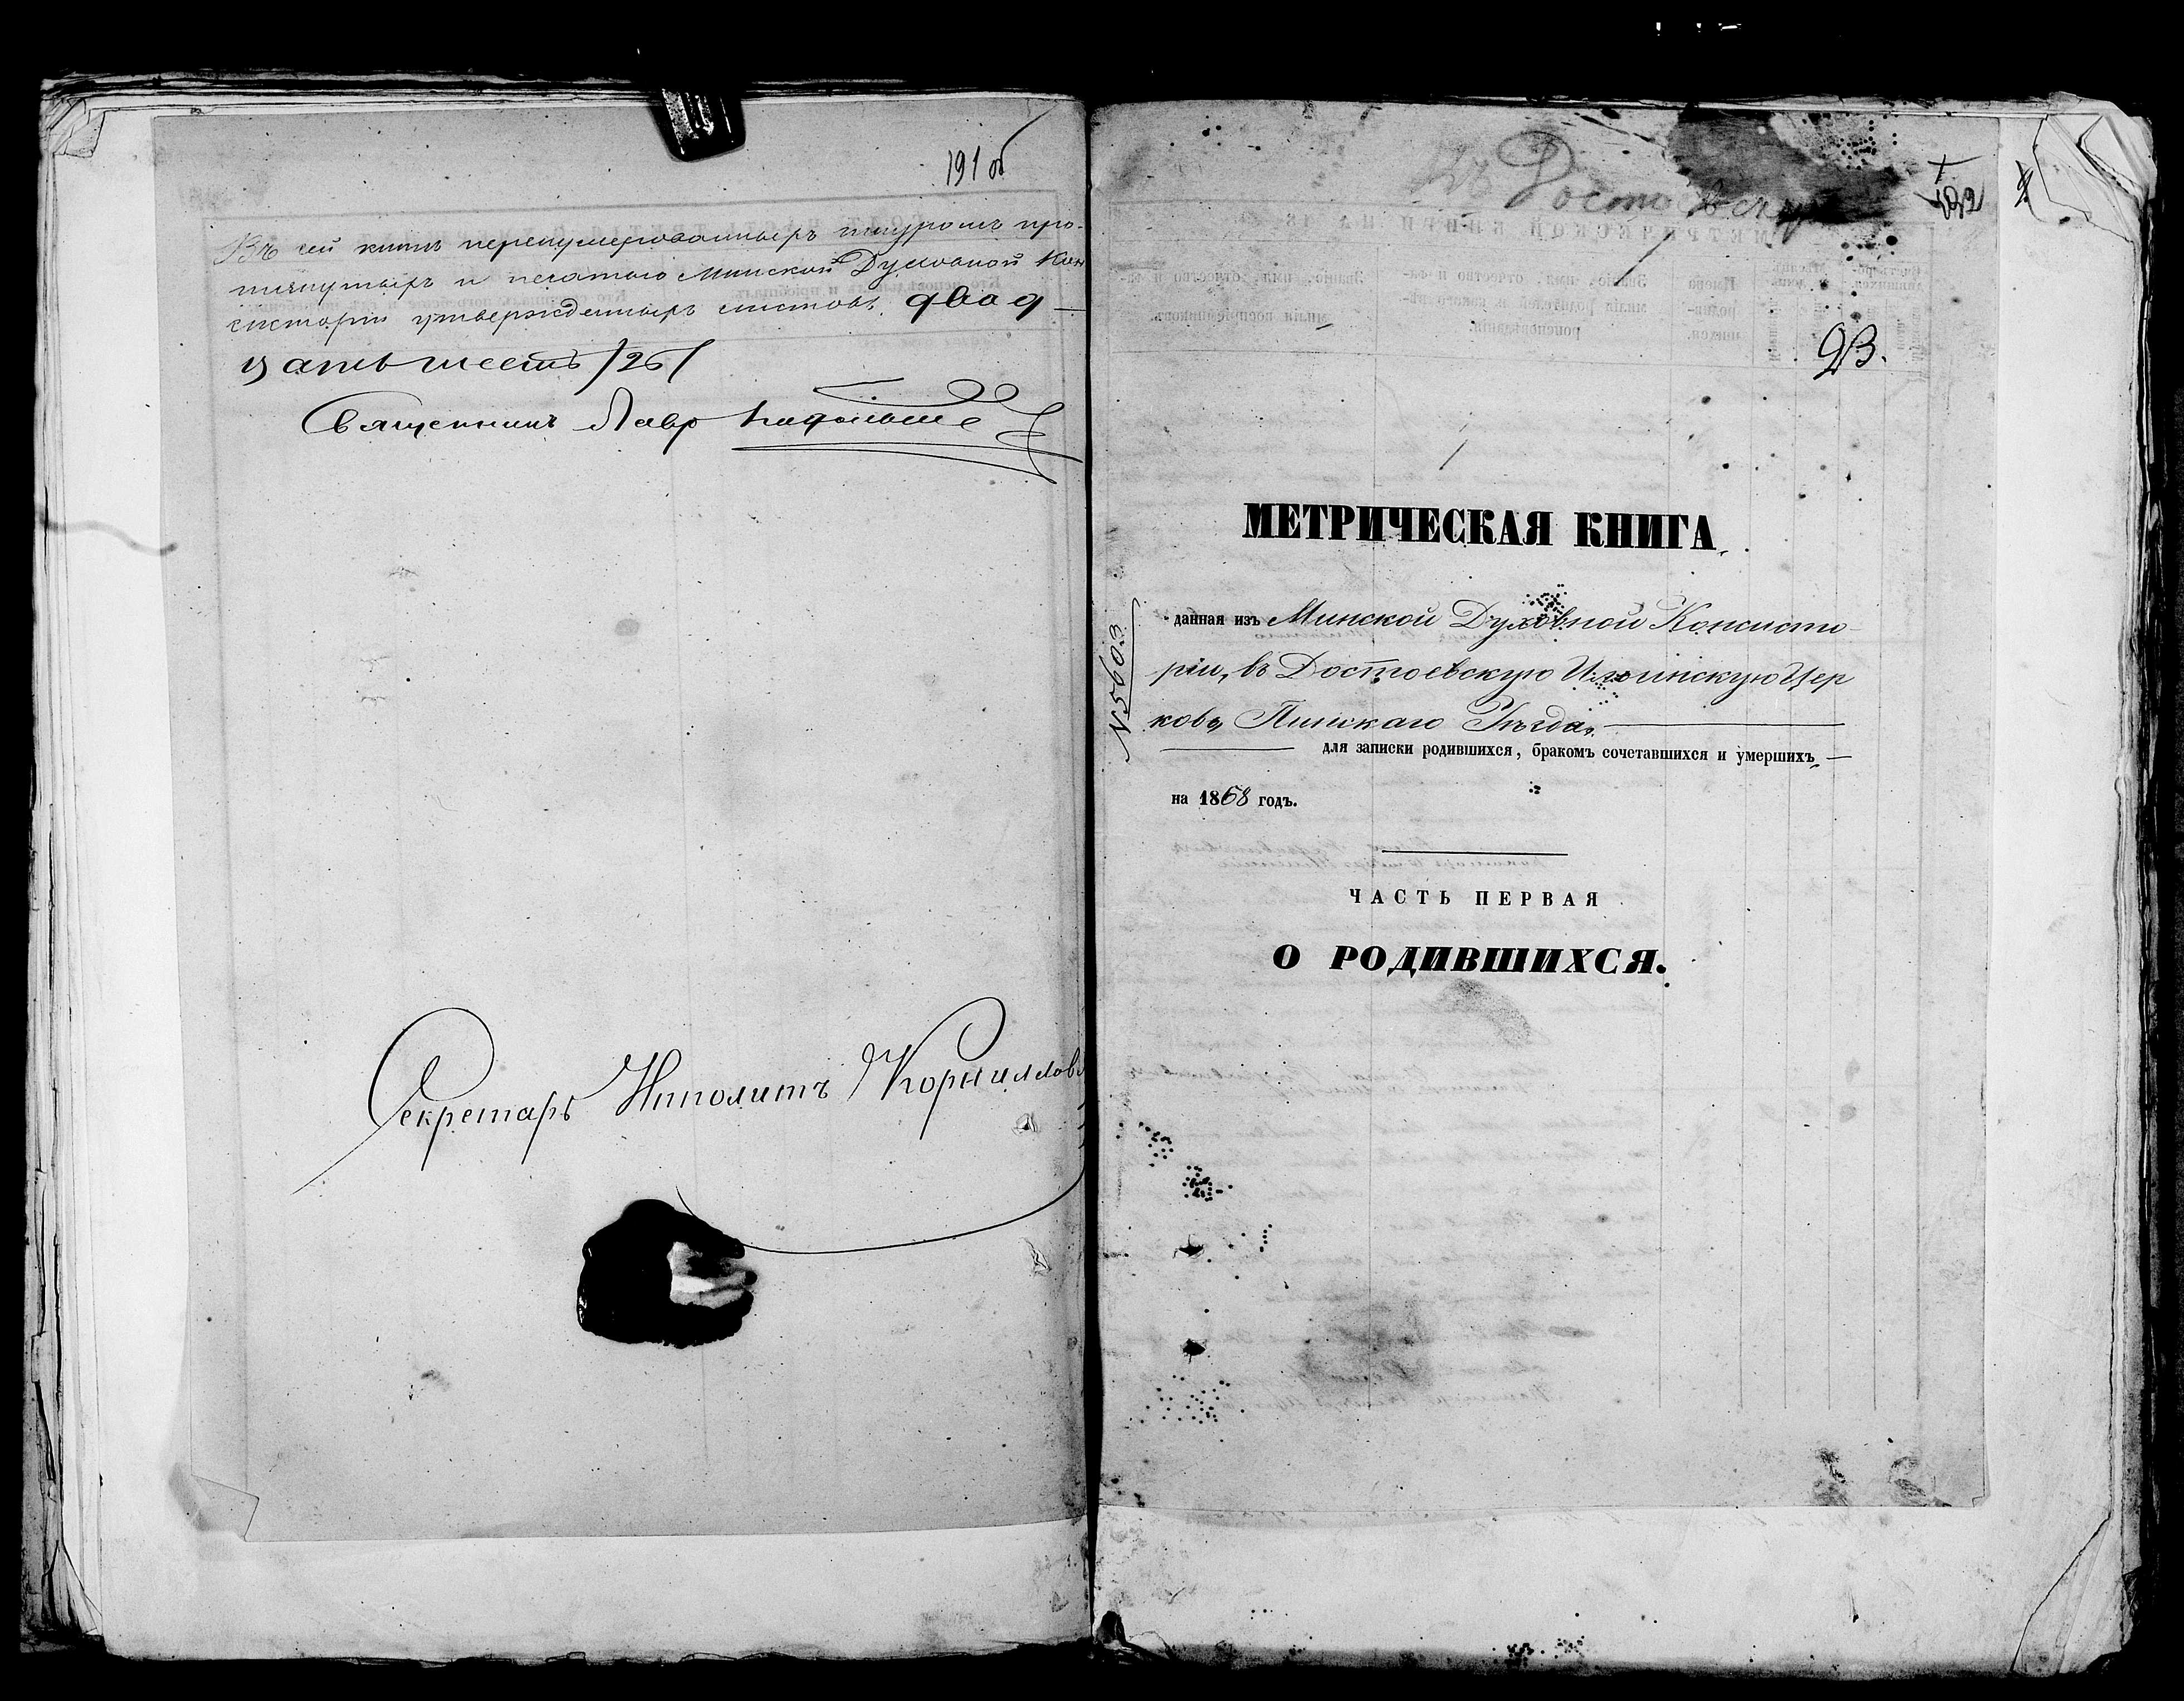 191 об
Въ сей книгѣ перенумерованныхъ шнуромъ про-
шнутыхъ и печатью Минской Духовной Кон
систоріи утвержденныхъ листовъ двад-
цать шесть /26/
Священникъ Лавр
Секретарь Ипполитъ Корниллов
въ Достоевскую
192
23.
МЕТРИЧЕСКАЯ КНИГА
№ 5603
данная изъ Минской Духовной Консисто-
ріи, въ Достоевскую Ильинскую Цер
ковь, Пинскаго Уѣзда.
для записки родившихся, бракомъ сочетавшихся и умершихъ,
на 1868 годъ.
ЧАСТЬ ПЕРВАЯ
О РОДИВШИХСЯ.